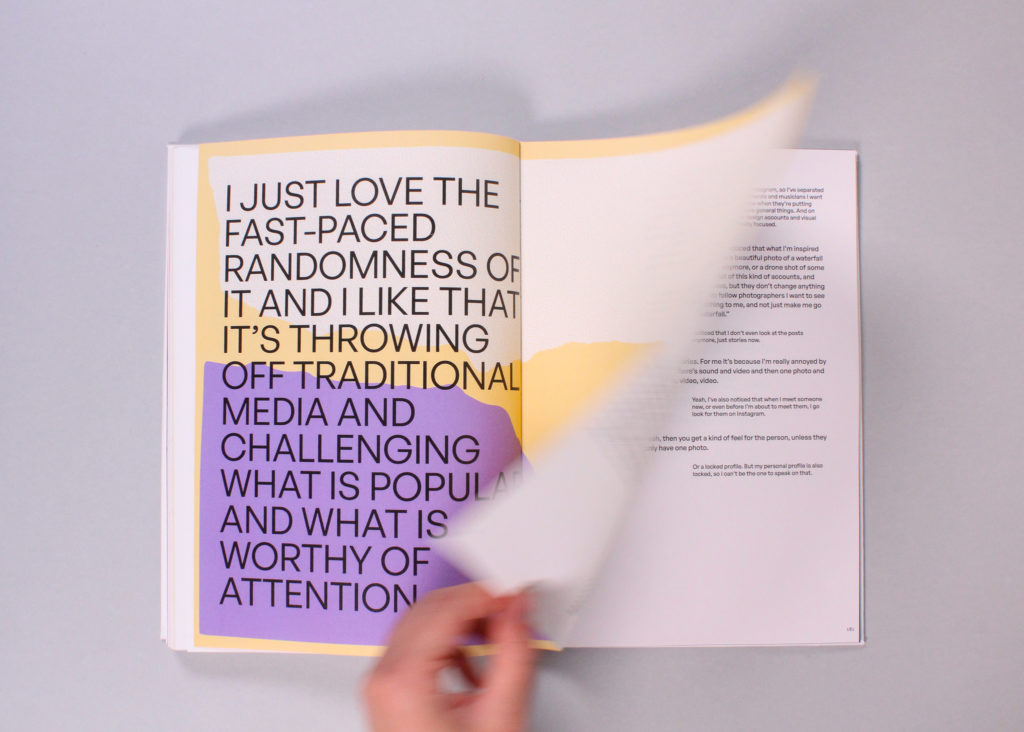 I JUST LOVE THE
FAST-PACED
RANDOMNESS OF
IT AND I LIKE THAT
IT'S THROWING
OFF TRADITIONAL
MEDIA AND
CHALLENGING
WHAT IS POPULAR
AND WHAT IS
WORTHY OF
ATTENTION
so I've separated
and musicians I want
when they're putting
general things. And on
design accounts and visual
focused.
that what I'm inspired
beautiful photo of a waterfall
anymore, or a drone shot of some
of this kind of accounts, and
but they don't change anything
follow photographers I want to see
to me, and not just make me go
noticed that I don't even look at the posts
anymore, just stories now.
For me it's because I'm really annoyed by
sound and video and then one photo and
video, video.
Yeah, I've also noticed that when I meet someone
new, or even before I'm about to meet them, I go
look for them on Instagram.
then you get a kind of feel for the person, unless they
only have one photo.
Or a locked profile. But my personal profile is also
locked, so I can't be the one to speak on that.